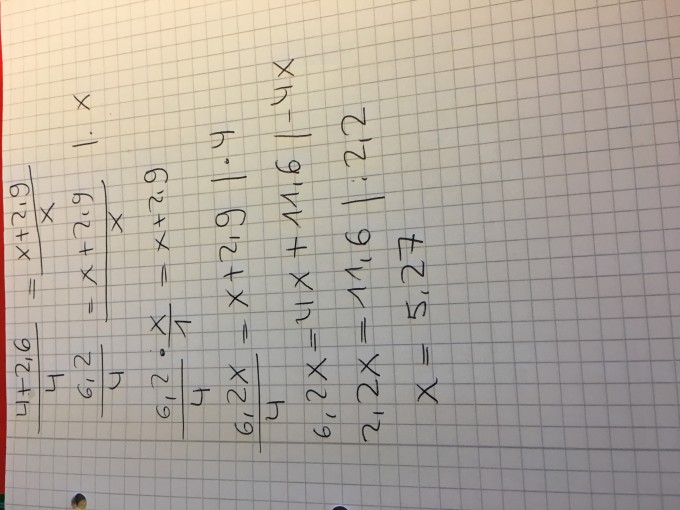 4+2,6/4 = x+2,9/x
6,2/4 = x+2,9/x |· x
6,2/4 · x/1 = x+2,9
6,2x/4 = x+2,9 |·4
6,2x = 4x + 11,6 |-4x
2,2x = 11,6 |:2,2
x = 5,27